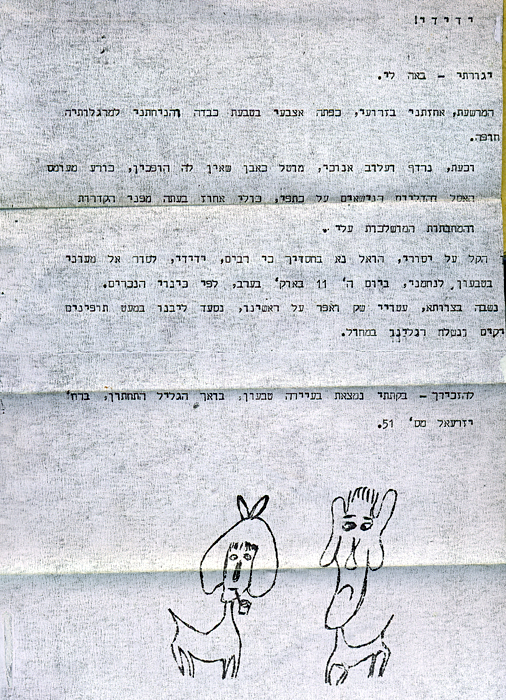 ידידי!
יגורתי – באה לי.
המרשעת, אחזתני בזרועי, כפתה אצבעי בטבעת כבדה והניחתני למרגלותיה
חופה.
וכעת, נרדף ועלוב אנוכי, מוטל כאבן שאין לה הופכין, כורע מעומס
האסל והדליים הנישאים על כתפי, כולי אחוז בעתה מפני הקדרות
והמחבתות המושלכות עלי.
הקל על יסורי, הואל נא בחסדיך כי רבים, ידידי, לסור אל מעוני
בטבעון לנחמני, ביום ה' 11 באוק' בערב, לפי כיבוי הנברים.
נשבה בצוותא, עטויי שק ואפר על ראשינו, נסעד ליבנו במעט תופינים
יקים ונשלח רגלינו במחול.
להזכירך – בקתתי נמצאת בעיירה טבעון, בואך הגליל התחתון, ברח'
יזרעאל מס' 51.